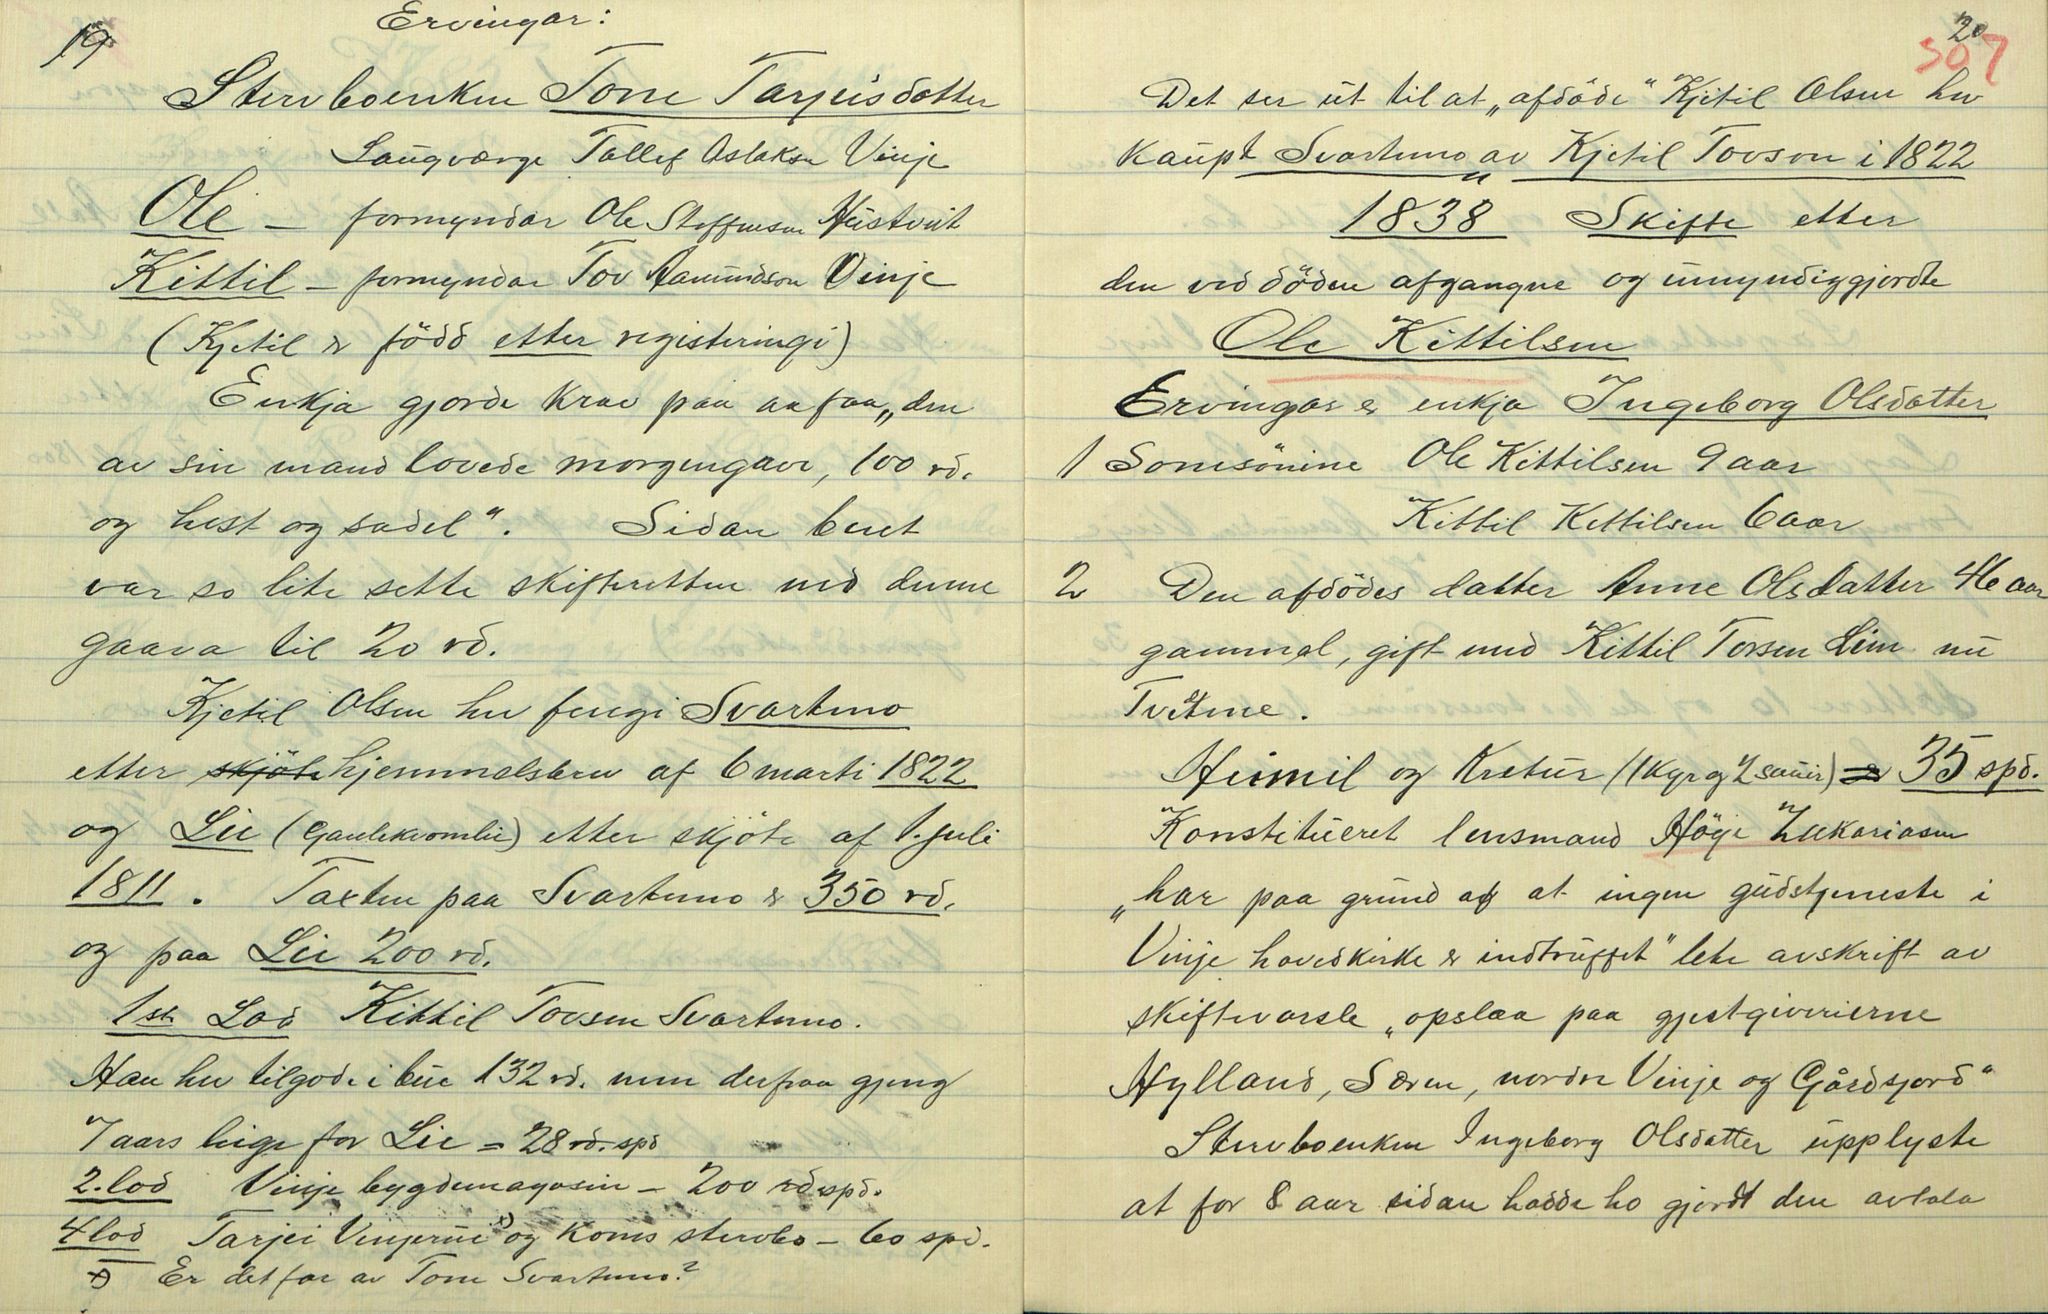 19
Ervingar:
Stervboenken Tone Tarjeisdotter
Laugværge Tallef Aslaksen Vinje
Ole – formyndar Ole Steffensen Heistveit
Kittil – formyndar Tov Aamundson Vinje
(Kjetil er född etter registeringi)
Enkja gjorde krav paa aa faa „den
av sin mand lovede morgengave, 100 rd.
og hest og sadel“. Sidan buet
var so lite sette skifteretten ned denne
gaava til 20 rd.
Kjetil Olsen hev fengi Svartemo
etter skjöte hjemmelsbrev af 6 marti 1822
og Lie (Gaulekvomlie) etter skjöte af 1. juli
1811. Taxten paa Svartemo er 350 rd.
og paa Lie 200 rd.
1st Lod Kittil Tovsen Svartemo.
Han hev tilgode i bue 132 rd. men derfraa gjeng
7 aars leige for Lie = 28 rd. spd
2. lod Vinje bygdemagasin – 200 rd spd.
4 lod Tarjei Vinjerui x) og Kones stervbo – 60 spd.
x) Er det far av Tone Svartemo?
20
507
Det ser ut til at „afdöde“ Kjetil Olsen hev
kaupt Svartemo av Kjetil Tovson i 1822
1838 Skifte etter
den ved döden afgangne og umyndiggjordte
Ole Kittilsen
Ervingar er enkja Ingeborg Olsdatter
1 Sonesönine Ole Kittilsen 9 aar
Kittil Kittilsen 6 aar
2 Den afdödes datter Anne Olsdatter 46 aar
gammel, gift med Kittil Tovsen Lien nu
Tveitene.
Heimil og Kretur (1 kyr og 2 sauir) = 35 spd.
Konstitueret lensmand Höge Zakariasen
„har paa grund af at ingen gudstjeneste i
Vinje hovedkirke er indtruffet“ lete avskrift av
skiftevarsle „opslaa paa gjestgiverierne
Hylland, Særen, nordre Vinje og Gårdsjord“
Stervboenken Ingeborg Olsdatter upplyste
at for 8 aar sidan hadde ho gjordt den avtala